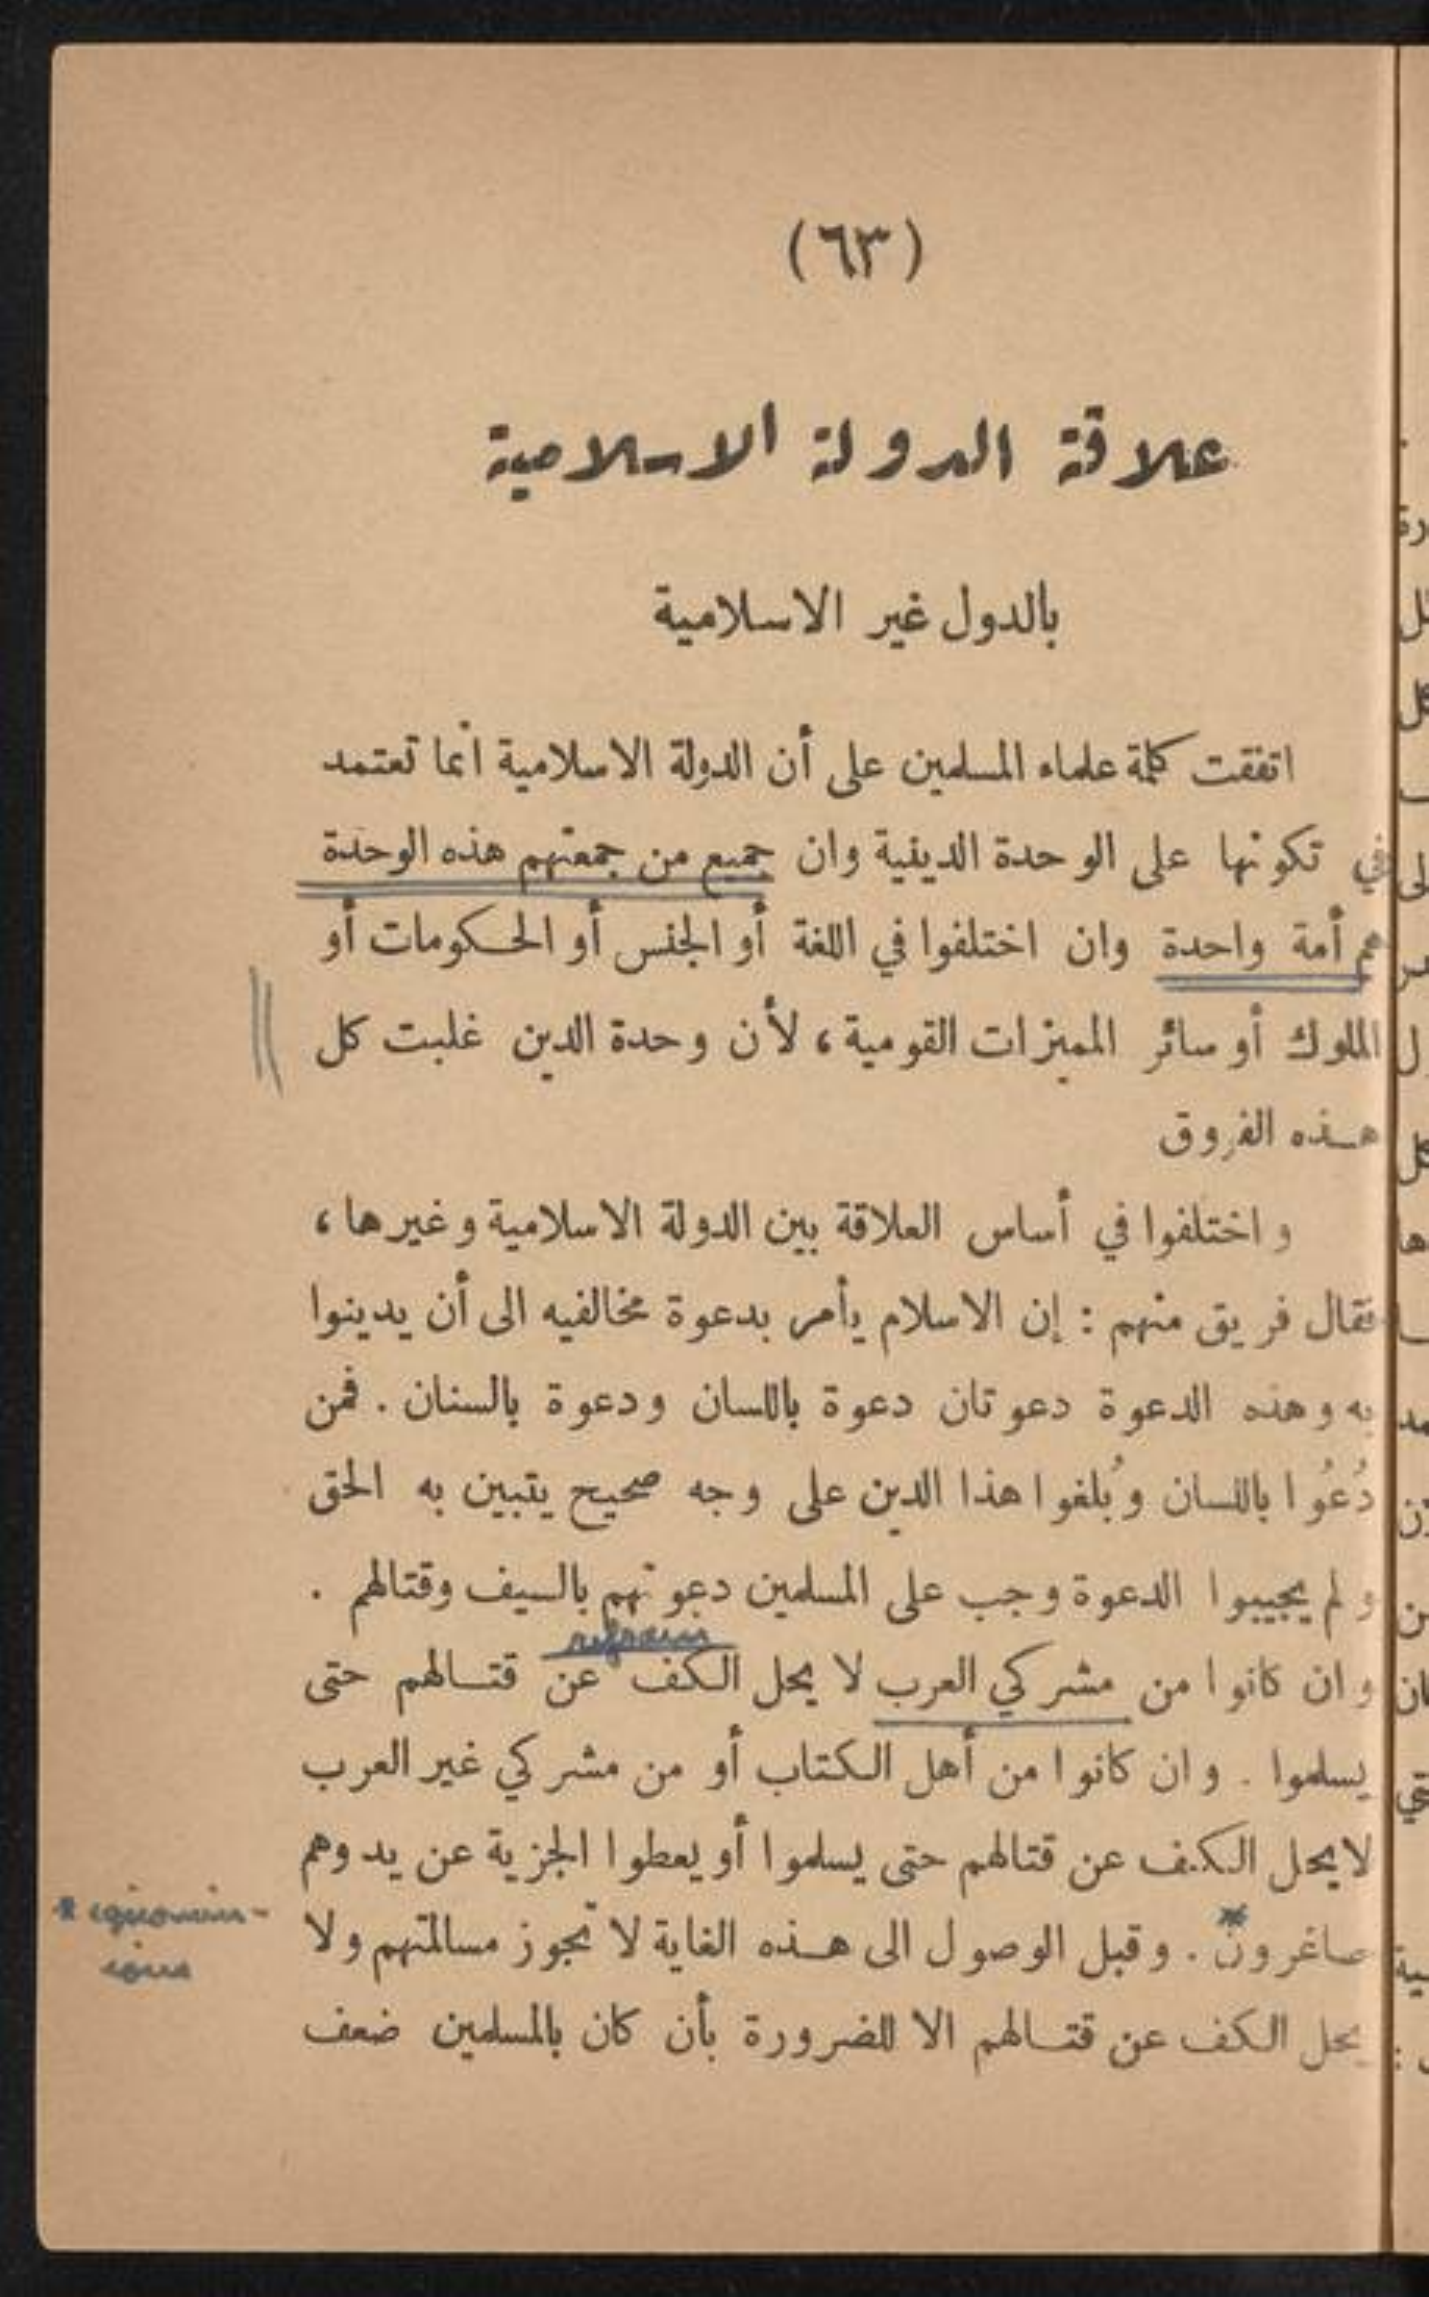 (٦٣)
علاقة الدولة الاسلامية
بالدول غير الاسلامية
اتفقت كلمة علماء المسلمين على أن الدولة الاسلامية انما تعتمد
في تكونها على الوحدة الدينية وان جميع من جمعتهم هذه الوحدة
هم أمة واحدة وان اختلفوا في اللغة أو الجنس أو الحكومات أو
الملوك أو سائر المميزات القومية، لأن وحدة الدين غلبت كل
هذه الفروق
واختلفوا في أساس العلاقة بين الدولة الاسلامية وغيرها،
فقال فريق منهم: إن الاسلام يأمر بدعوة مخالفيه الى أن يدينوا
به وهذه الدعوة دعوتان دعوة باللسان ودعوة بالسنان. فمن
دُعُوا باللسان وبُلغوا هذا الدين على وجه صحيح يتبين به الحق
ولم يجيبوا الدعوة وجب على المسلمين دعوتهم بالسيف وقتالهم.
refrain
وان كانوا من مشركي العرب لا يحل الكف عن قتالهم حتى
يسلموا. وان كانوا من أهل الكتاب أو من مشركي غير العرب
لا يحل الكف عن قتالهم حتى يسلموا أو يعطوا الجزية عن يد وهم
صاغرون*. وقبل الوصول الى هذه الغاية لا تجوز مسالمتهم ولا
يحل الكف عن قتالهم الا للضرورة بأن كان بالمسلمين ضعف